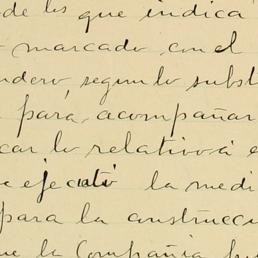 de los que indica
marcado con el
ndero, segun lo subst
para acompañar
car lo relativo á e
e ejecutó la medi
para la construcci
ue la Compañia